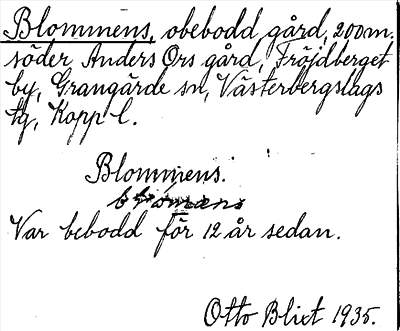 Blommens, obebodd gård, 200 m.
söder Anders Ors gård, Fröjdberget
by, Grangärde sn, Västerbergslags
tg, Kopp l.
Blommens.
Var bebodd för 12 år sedan.
Otto Blixt 1935.